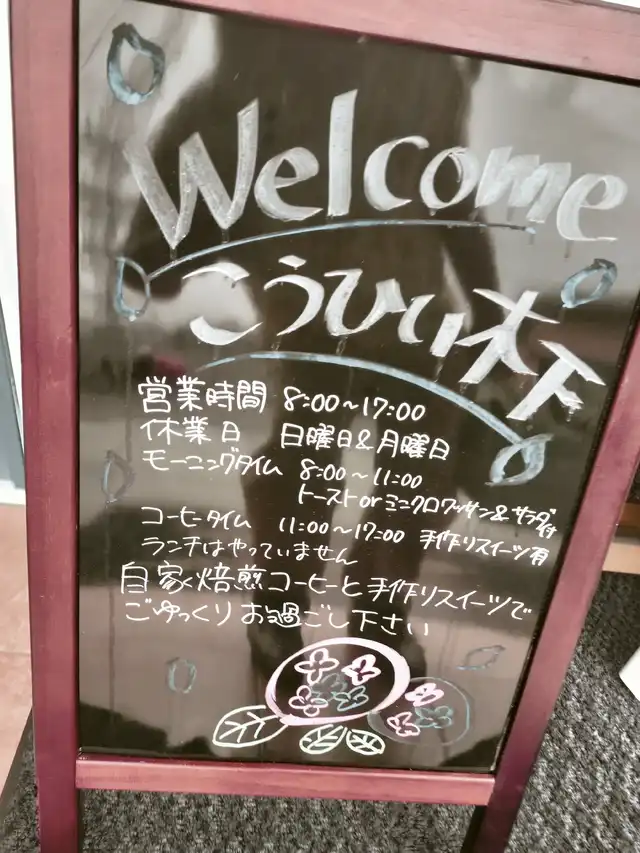 Welcome
こうひい杯
営業時間 8:00～17:00
休業日 日曜日&月曜日
モーニングタイム 8:00～11:00
トーストorミニクロワッサン&サラダ付
コーヒータイム 11:00～17:00 手作りスイーツ有
ランチはやっていません
自家焙煎コーヒーと手作りスイーツで
ごゆっくりお過ごし下さい